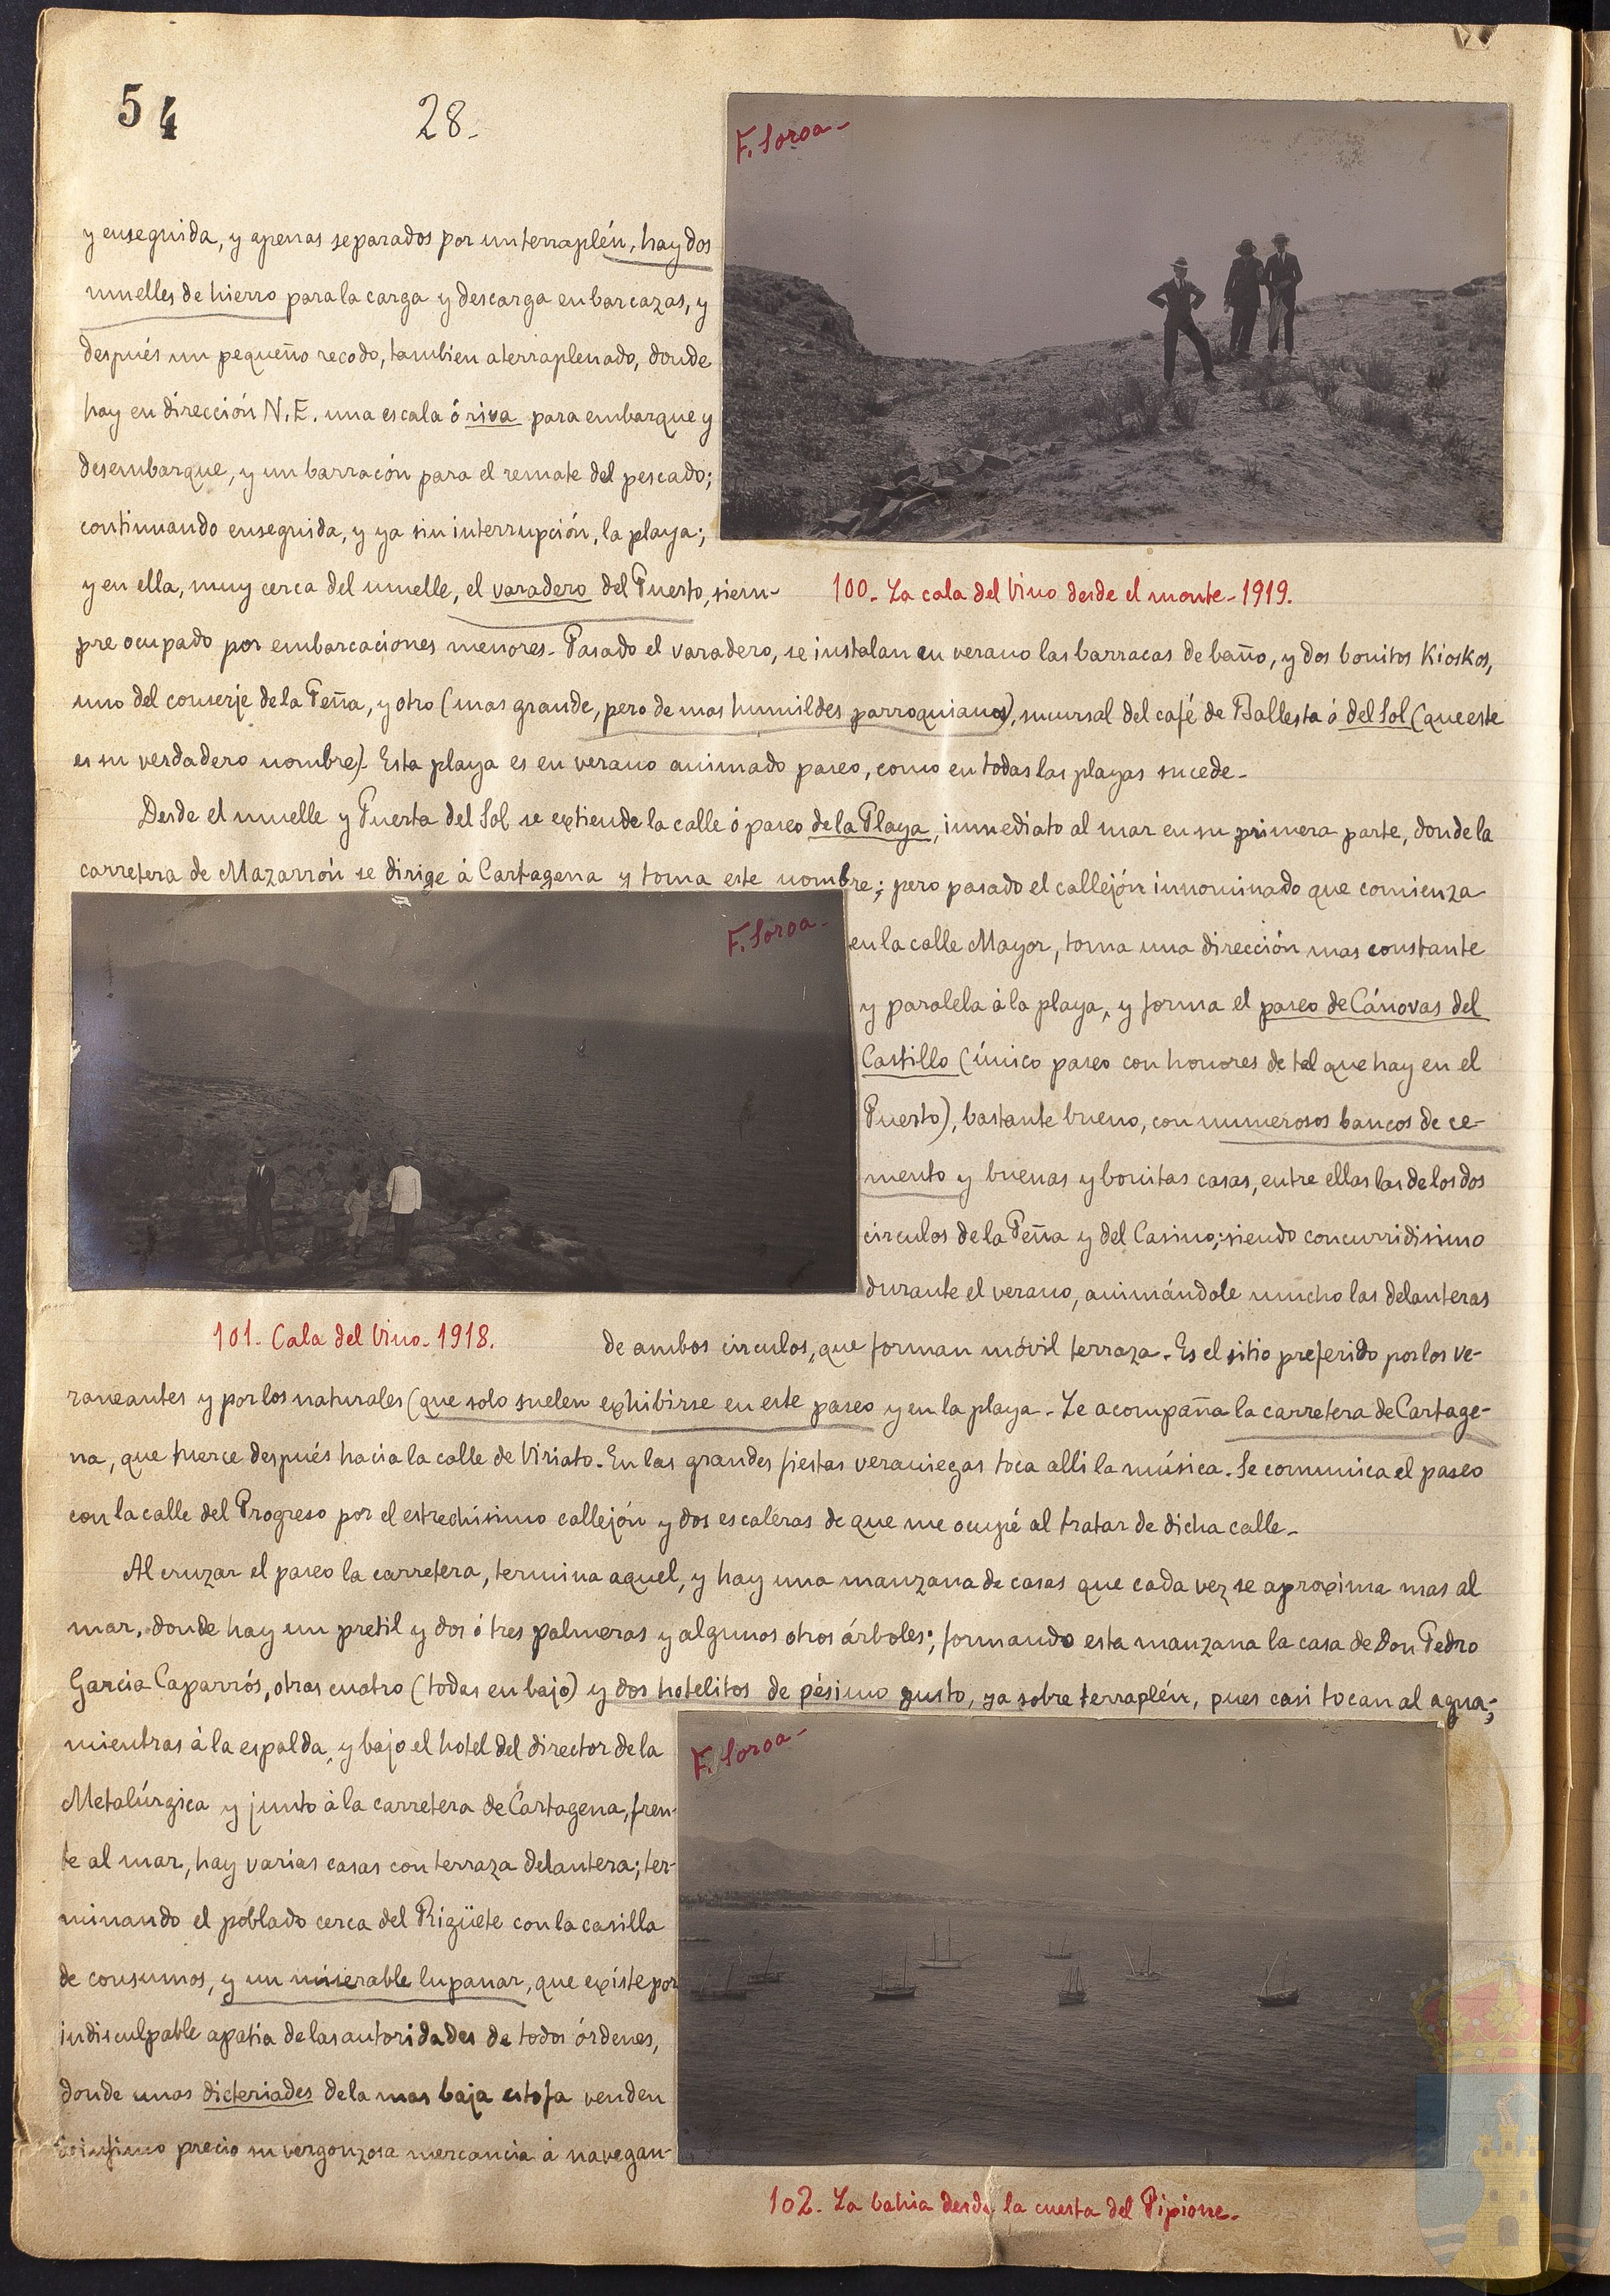 54
28.
F. Soroa-
y enseguida, y apenas separados por un terraplén, hay dos
muelles de hierro para la carga y descarga en barcazas, y
después un pequeño recodo, tambien aterraplenado, donde
hay en dirección N.E. una escala ó riva para embarque y
desembarque, y un barracón para el remate del pescado;
continuando enseguida, y ya sin interrupción, la playa;
y en ella, muy cerca del muelle, el varadero del Puerto, siem-
100. La cala del Vino desde el monte-1919.
pre ocupado por embarcaciones menores. Pasado el varadero, se instalan en verano las barracas de baño, y dos bonitos Kioskos,
uno del conserje de la Peña, y otro (mas grande, pero de mas humildes parroquianos), sucursal del café de Ballesta ó del Sol (que este
es su verdadero nombre). Esta playa es en verano animado paseo, como en todas las playas sucede.
Desde el muelle y Puerta del Sol se extiende la calle ó paseo de la Playa, inmediato al mar en su primera parte, donde la
carretera de Mazarrón se dirige á Cartagena y toma este nombre; pero pasado el callejón innominado que comienza
F. Soroa-
en la calle Mayor, toma una dirección mas constante
y paralela á la playa, y forma el paseo de Cánovas del
Castillo (único paseo con honores de tal que hay en el
Puerto), bastante bueno, con numerosos bancos de ce-
mento y buenas y bonitas casas, entre ellas las de los dos
circulos de la Peña y del Casino; siendo concurridisimo
durante el verano, animándole mucho las delanteras
101. Cala del Vino-1918.
de ambos circulos, que forman móvil terraza. Es el sitio preferido por los ve-
raneantes y por los naturales (que solo suelen exhibirse en este paseo y en la playa. Le acompaña la carretera de Cartage-
na, que tuerce después hacia la calle de Viriato. En las grandes fiestas veraniegas toca alli la música. Se comunica el paseo
con la calle del Progreso por el estrechísimo callejón y dos escaleras de que me ocupé al tratar de dicha calle.
Al cruzar el paseo la carretera, termina aquel, y hay una manzana de casas que cada vez se aproxima mas al
mar, donde hay un pretil y dos ó tres palmeras y algunos otros árboles; formando esta manzana la casa de Don Pedro
Garcia Caparrós, otras cuatro (todas en bajo) y dos hotelitos de pésimo gusto, ya sobre terraplén, pues casi tocan al agua;
F. Soroa-
mientras á la espalda, y bajo el hotel del director de la
Metalúrgica y junto á la carretera de Cartagena, fren-
te al mar, hay varias casas con terraza delantera; ter-
minando el poblado cerca del Rigüete con la casilla
de consumos, y un miserable lupanar, que existe por
indisculpable apatia de las autoridades de todos órdenes,
donde unas dicteriades de la mas baja estofa venden
precio su vergonzosa mercancia á navegan-
102. La bahia desde la cuesta del Pipione.